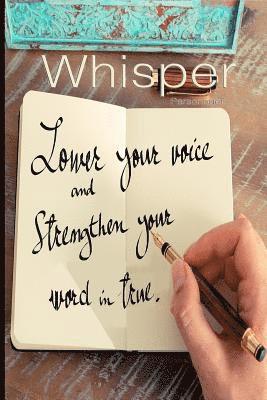 Whisper
Lower your voice
and
Strengthen your
word in true.